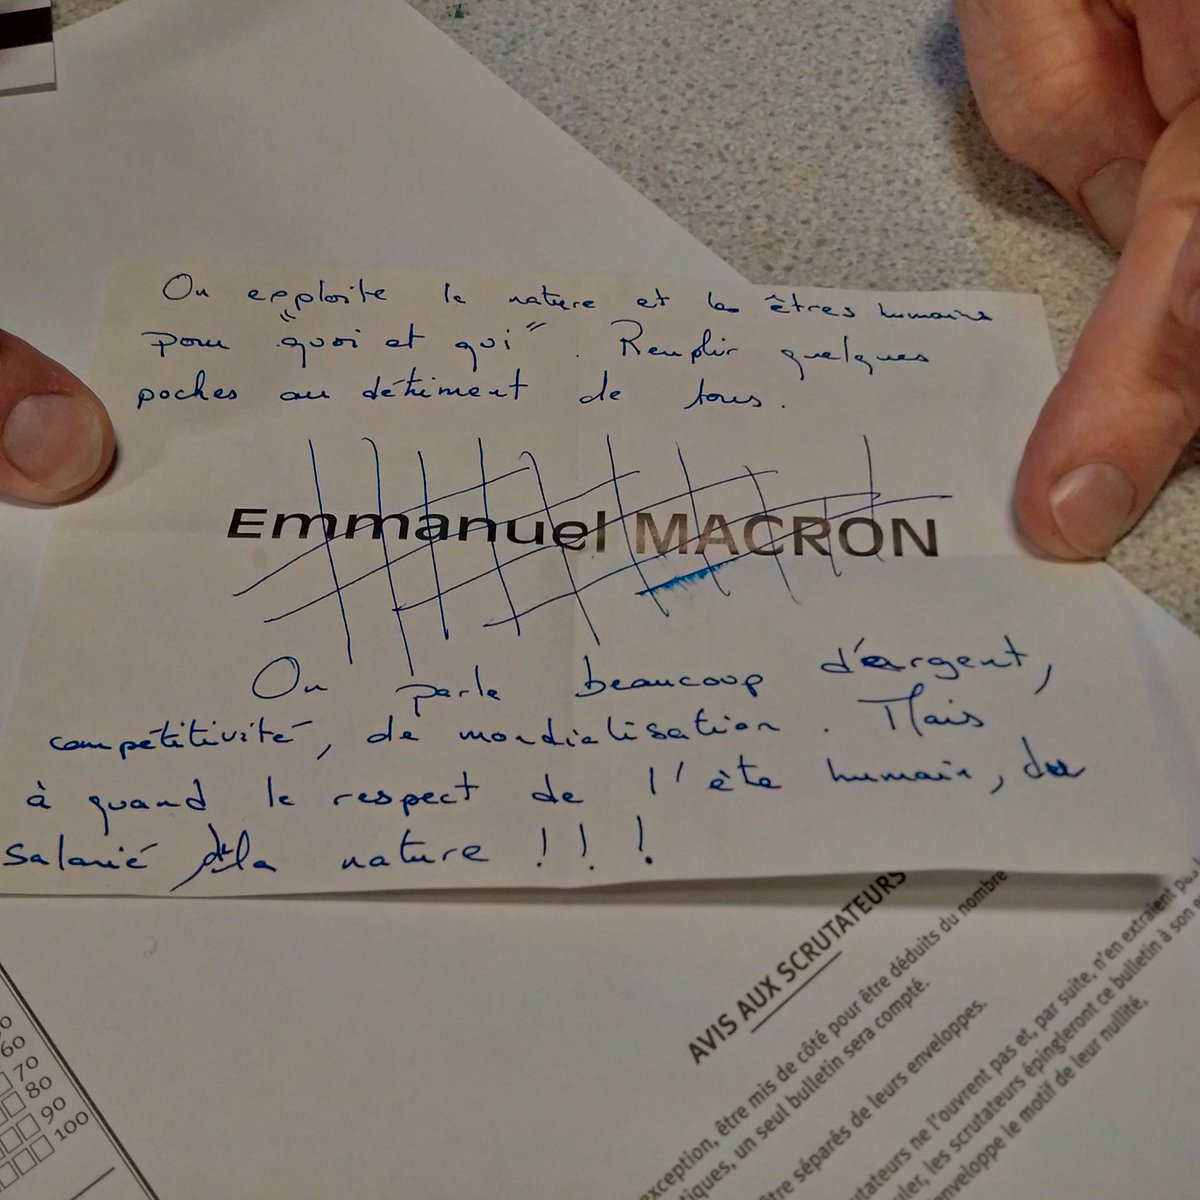 On exploite la nature et les êtres humains
pour "quoi et qui". Remplir quelques
poches au détriment de tous.
Emmanuel MACRON
On parle beaucoup d'argent,
compétitivité, de mondialisation. Mais
à quand le respect de l'ête humain, du
salarié de la nature !!!
AVIS AUX SCRUTATEURS
exception, être mis de côté pour être déduits du nombre
tiques, un seul bulletin sera compté.
tre séparés de leurs enveloppes.
utateurs ne l'ouvrent pas et, par suite, n'en extraient pas
uler, les scrutateurs épingleront ce bulletin à son
nveloppe le motif de leur nullité.
60
70
80
90
100